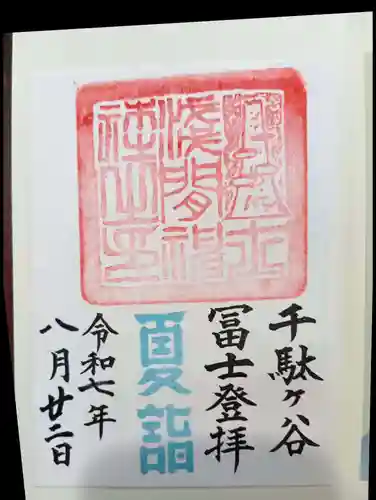 千駄ヶ谷
冨士登拝
夏詣
令和七年
八月廿二日